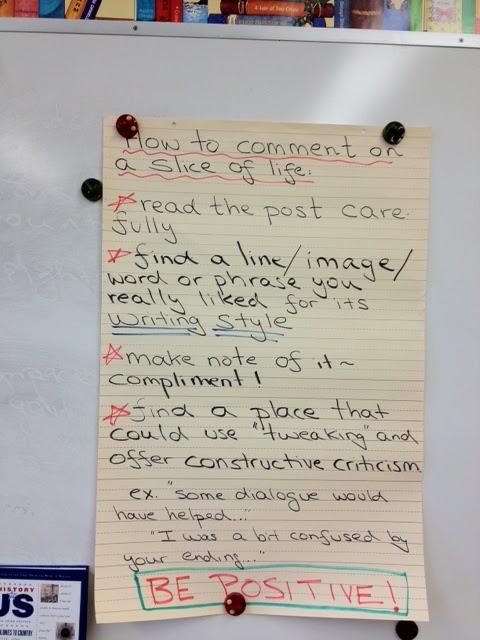 A Tale of Two Cities
How to comment on
a slice of life:
read the post care-
fully
find a line/image/
word or phrase you
really liked for its
writing style
make note of it~
compliment!
find a place that
could use "tweaking" and
offer constructive criticism
ex. "some dialogue would
have helped..."
"I was a bit confused by
your ending..."
BE POSITIVE!
HISTORY
US